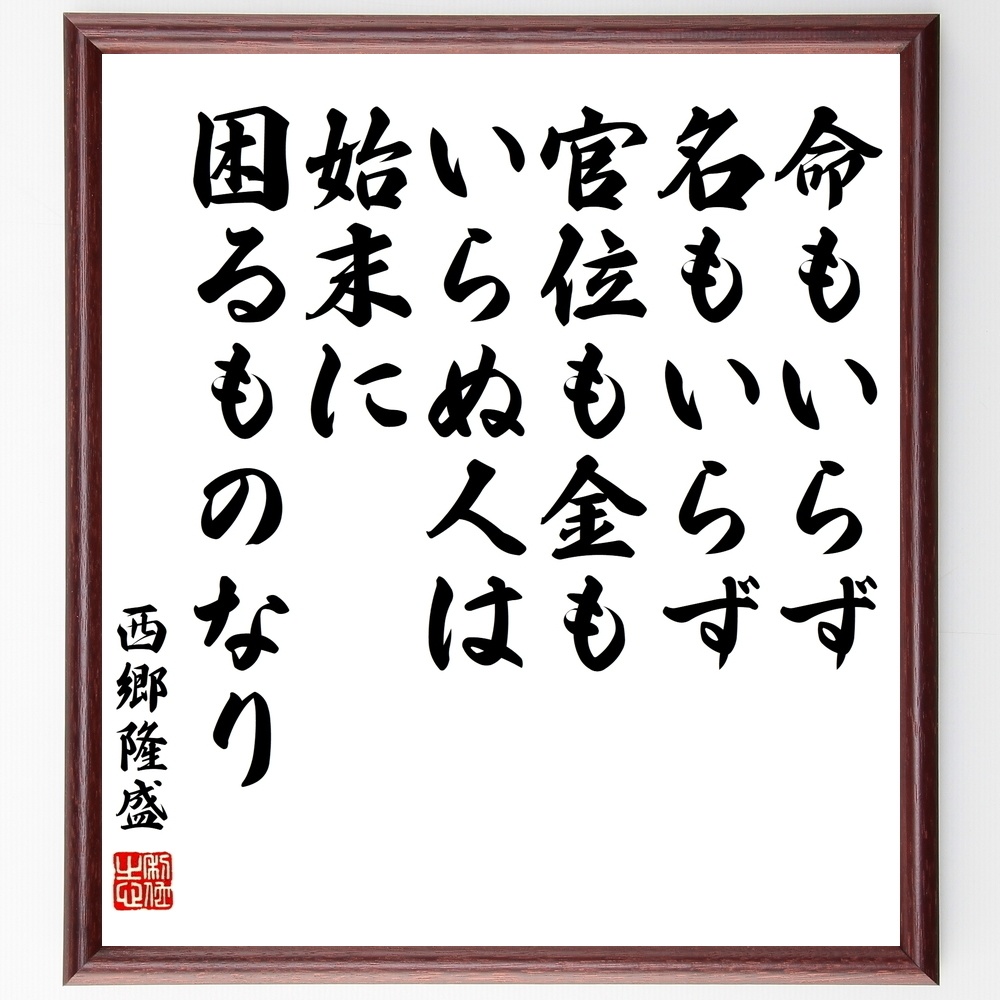 命もいらず
名もいらず
官位も金も
いらぬ人は
始末に
困るものなり
西郷隆盛